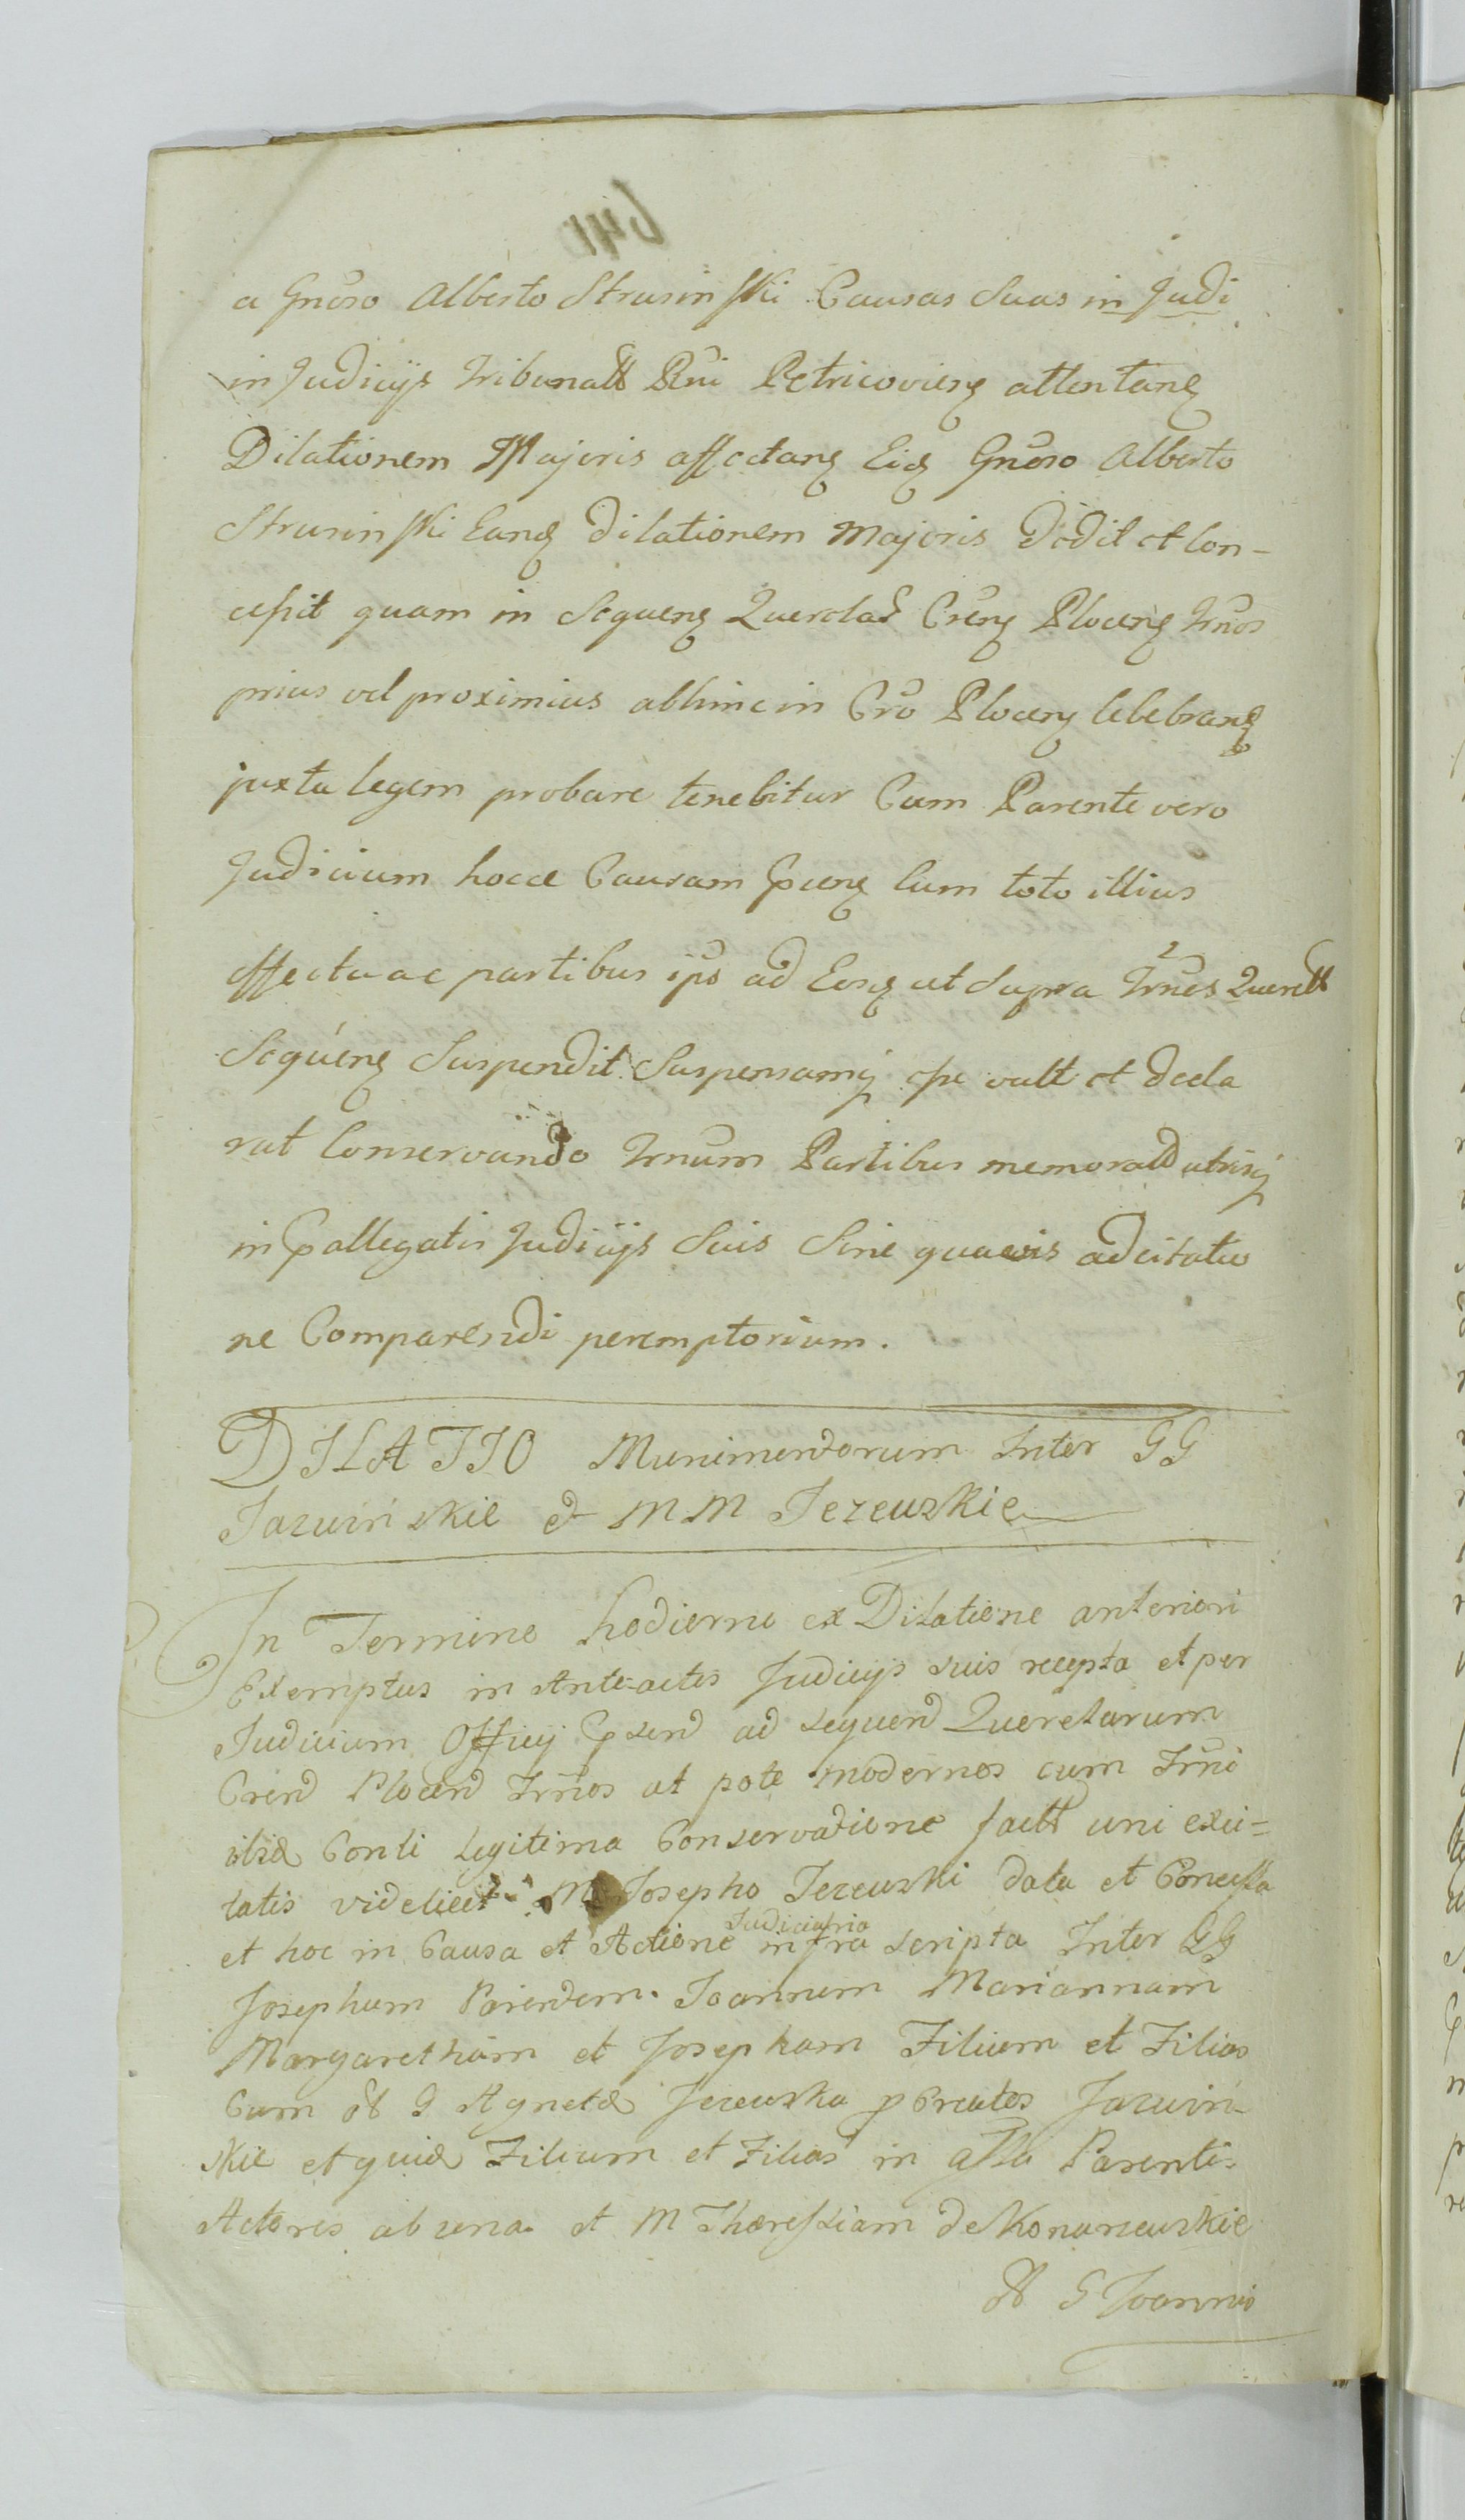 a Gnoso Alberto Strusinski Causas Suas in Judi
in Judicijs Tribunall Rni Petricovien attentan
Dilationem Majoris affectan Eid Gnoso Alberto
Strusinski Eand dilationem Majoris dedit et Con-
cessit quam in Sequen Querelar Cren Plocen Trnos
prius vel proximius abhinc in Cro Plocen Celebran
juxta legem probare tenebitur Cum Parente vero
Judicium hocce Causam Cum toto illius
effectu ac partibus ips ad Eosd ut Supra Trnos Querell
Sequen Suspendit Suspensamq esse vult et decla
rat Conservando Trnum Partibus memorat utrisq
in pallegatis Judicijs Suis Sine quavis adcitatio
ne Comparendi peremptorium.
DILATIO Munimentorum Inter GG
Jazwińskie et MM Jezewskie
In Termino hodierno ex Dilatione anteriori
Exemptus in Ante-actis Judicijs suis recepta et per
Judicium Officij psend ad sequend Querelarum
Crend Plocend Trnos ut pote modernos cum Trni
ibid Conti Legitima Conservatione fact uni exci=
tatis videlicet M Josepho Jezewski data et Concessa
et hoc in Causa et Actione Judiciario infra scripta Inter GG
Josephum Parentem Joannem Mariannam
Margaretham et Josepham Filium et Filias
Cum G Agneta Jezewska pcreatos Jazwin-
skie et quid Filium et Filias in assa Parentis
Actores ab una et M Theressiam de Konarzewskie
G Joannis